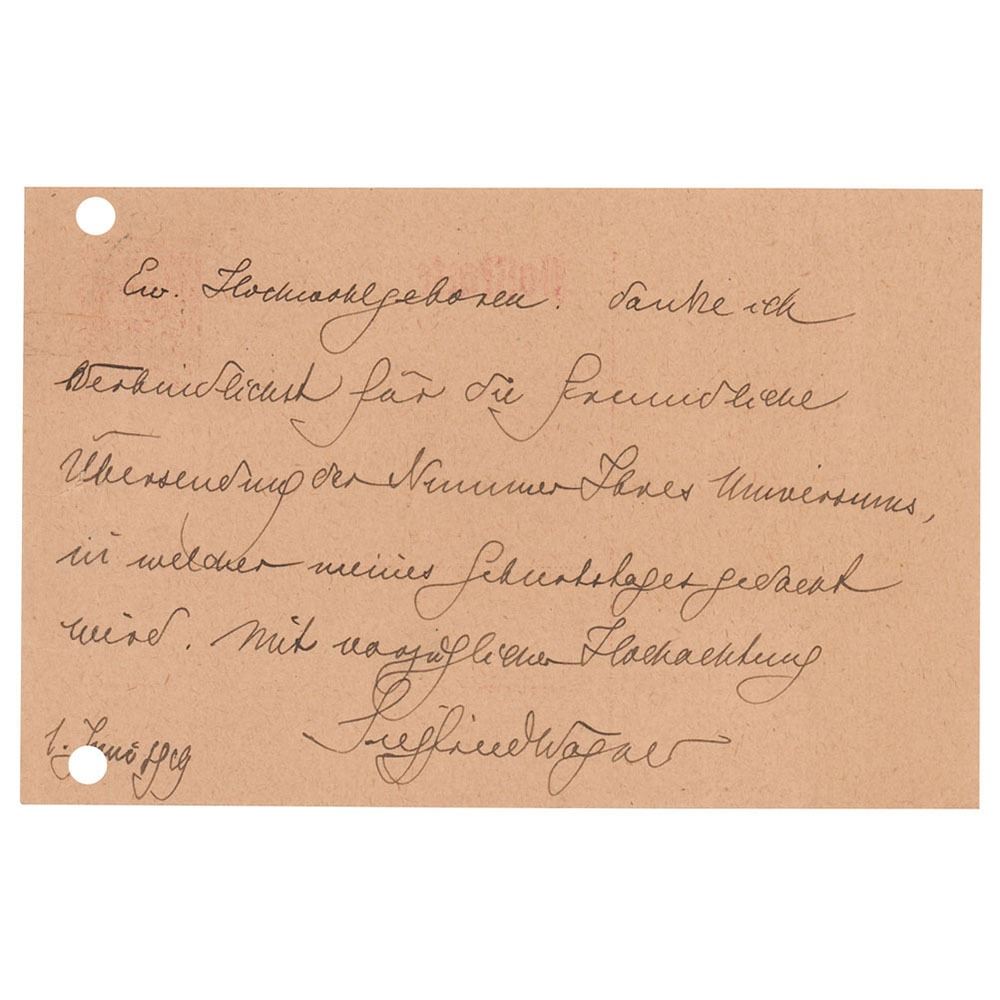 Ew. Hochwohlgeboren. danke ich
verbindlichst für die freundliche
Übersendung der Nummer Ihres Universums,
in welcher meines Geburtstages gedacht
wird. Mit vorzüglicher Hochachtung
Siegfried Wagner
1. Juni 1919